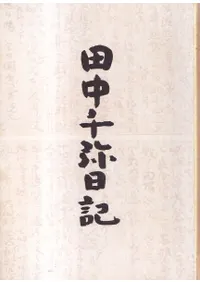 田中千弥日記